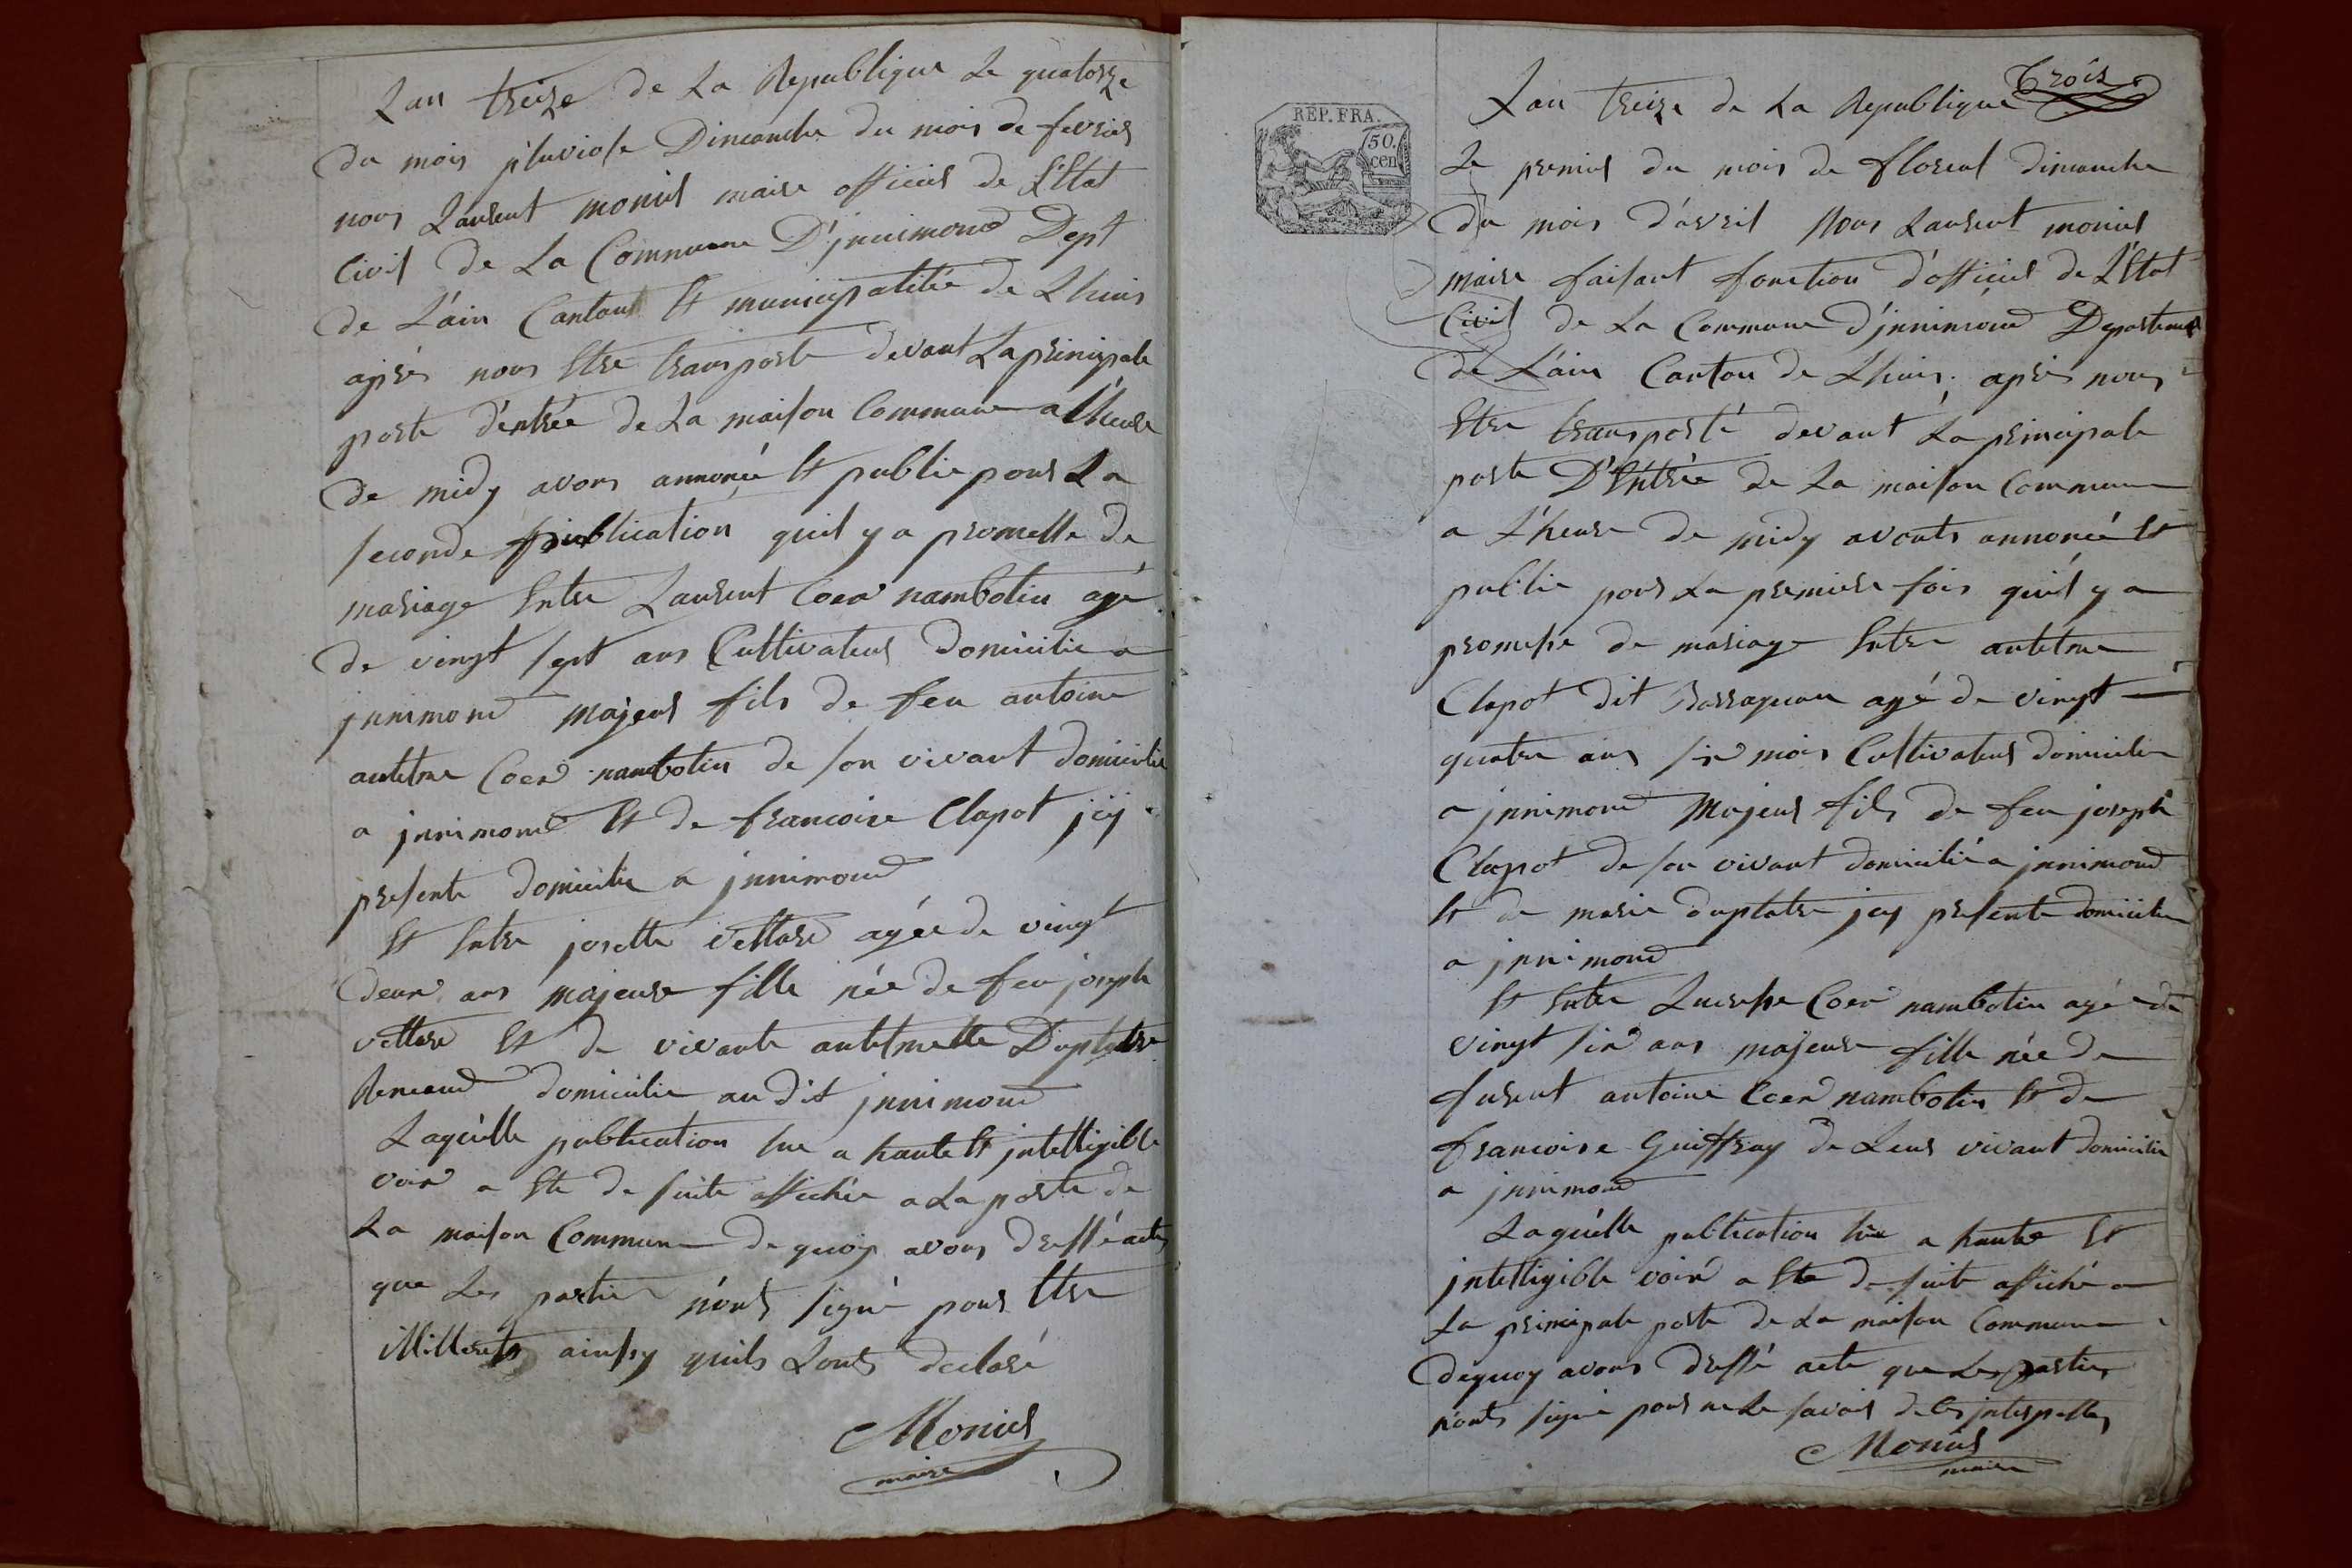 Lan treize de La Republique Le quatorze
du mois pluviose Dimanche du mois de fevrier
nous Laurent monier maire officier de L'Etat
Civil de La Commune D'jnnimond Dept
de L'ain Canton Et municipalitée de Lhuis
après nous Etre transporte devant La principale
porte d'entrée de La maison Commune a l'heure
de midy avons annoncé Et publie pour La
seconde publication quil y a promesse de
mariage Entre Laurent Coer nambotin agé
de vingt sept ans Cultivateur Domicilie a
jnnimond majeur fils de feu antoine
antelme Coer nambotin de son vivant domicilie
a jnnimond Et de francoise Clapot jcy
presente domicilie a jnnimond
Et Entre josette vettard agée de vingt
deux ans majeure fille née de feu joseph
vettard Et de vivante antelmette Duplatre
Renaud domicilie au dit jnnimond
Laquelle publication lue a haute Et jntelligible
voix a Ete de suite affichée a La porte de
La maison Commune de quoy avons dressé acte
que Les partie n'ont signé pour Etre
illiterets ainsy quils Lonts declaré
Monier
maire
Trois
Lan treize de La Republique
REP. FRA.
50.
cen
Le premier du mois de floreal dimanche
du mois d'avril Nous Laurent monier
maire faisant fonction d'officier de L'Etat
Civil de La Commune d'jnnimond Departement
de L'ain Canton de Lhuis. après nous
Etre transporté devant La principale
porte D'Entrée de La maison Commune
a L'heure de midy avonts annoncé Et
publie pour La premiere fois quil y a
promesse de mariage Entre antelme
Clapot dit agé de vingt
quatre ans six mois Cultivateur domicilie
a jnnimond Majeur fils de feu joseph
Clapot de son vivant domicilié a jnnimond
Et de marie duplatre jcy presente domicilie
a jnnimond
Et Entre Lucresse Coer nambotin agé de
vingt six ans majeure fille née de
furent antoine Coer nambotin Et de
francoise Guiffray de Leur vivant domicilie
a jnnimond
Laquelle publication lue a haute Et
jntelligible voix a Ete de suite affiché a
La principale porte de La maison Commune
dequoy avons dressé acte que Les parties
n'onts signé pour ne Le savoir de Ce jnterpelles
Monier
maire